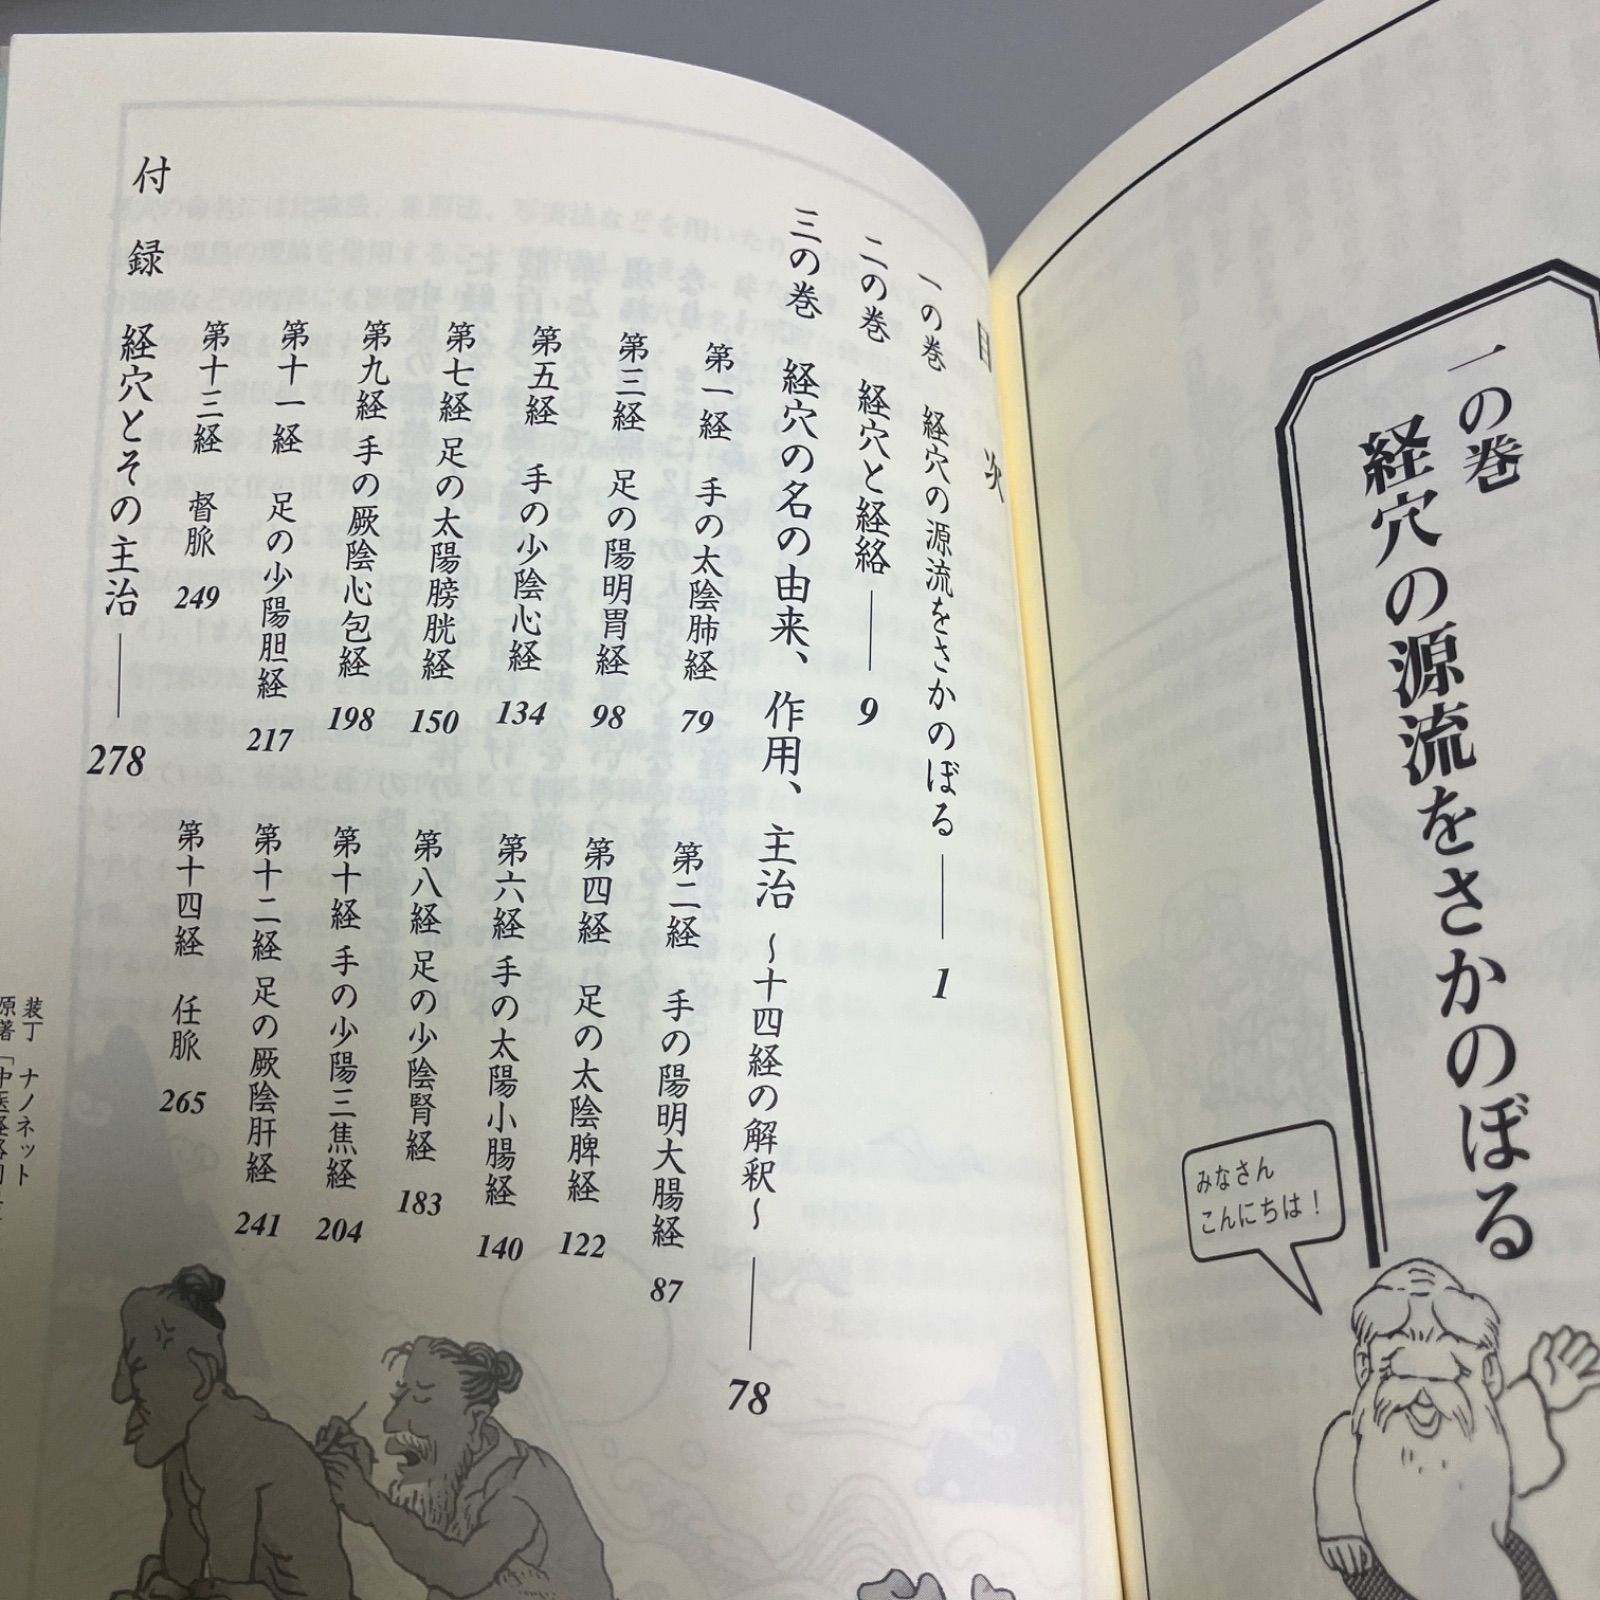 一の巻
経穴の源流をさかのぼる
みなさん
こんにちは！
目次
一の巻 経穴の源流をさかのぼる 1
二の巻 経穴と経絡 9
三の巻 経穴の名の由来、作用、主治 〜十四経の解釈〜 78
第一経 手の太陰肺経 79
第二経 手の陽明大腸経 87
第三経 足の陽明胃経 98
第四経 足の太陰脾経 122
第五経 手の少陰心経 134
第六経 手の太陽小腸経 140
第七経 足の太陽膀胱経 150
第八経 足の少陰腎経 183
第九経 手の厥陰心包経 198
第十経 手の少陽三焦経 204
第十一経 足の少陽胆経 217
第十二経 足の厥陰肝経 241
第十三経 督脈 249
第十四経 任脈 265
付録 経穴とその主治 278
装丁 ナノネット
原著「中医経絡